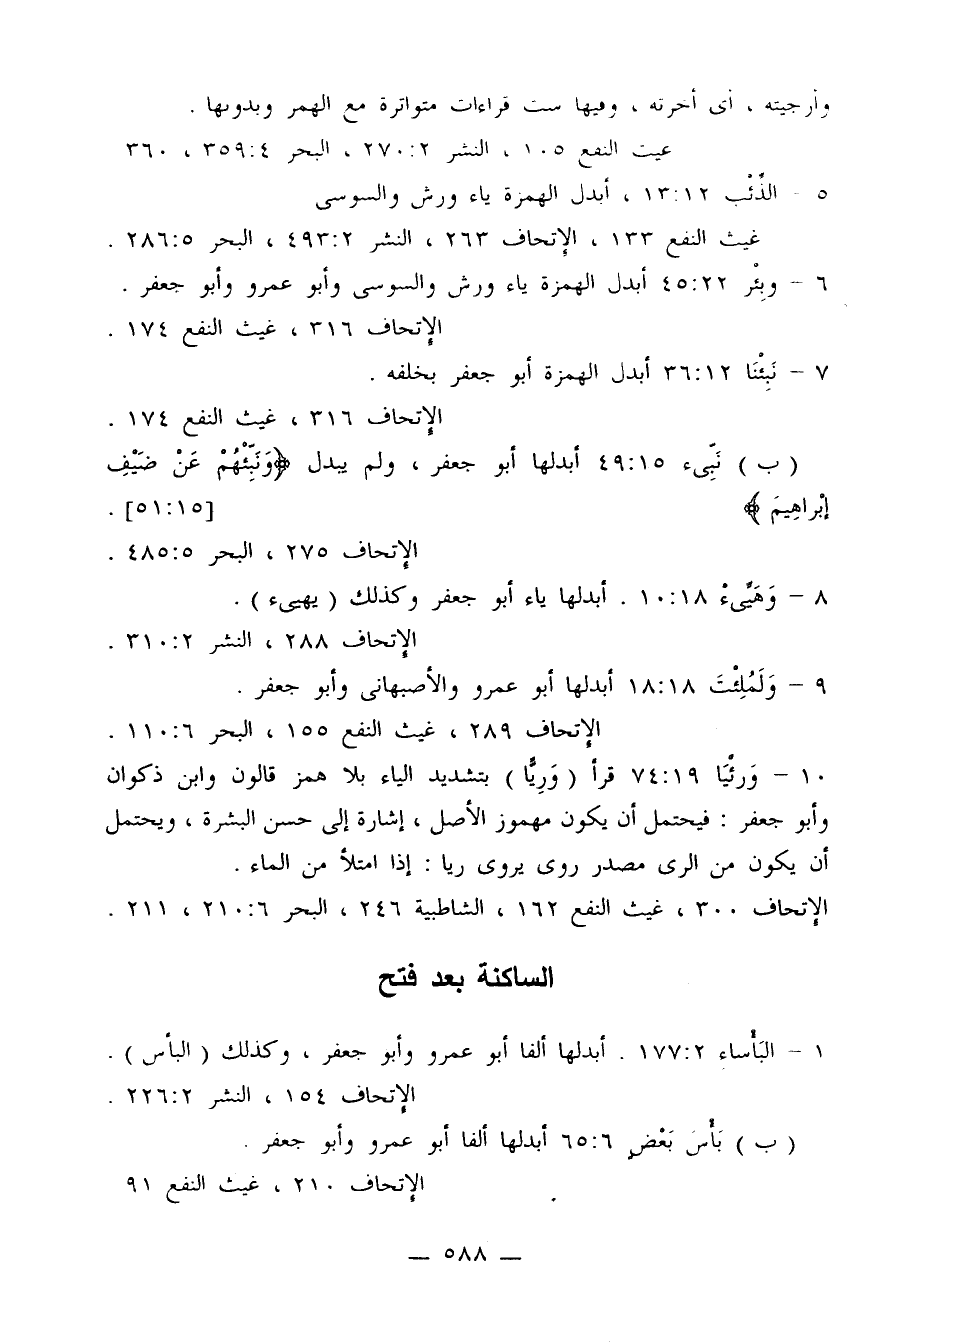 وأرجيته ، أى أخرته ، وفيها ست قراءات متواترة مع الهمز وبدونها .
غيث النفع ١٠٥ ، النشر ٢٧٠:٢ ، البحر ٣٥٩:٤ ، ٣٦٠
٥ - الذِّئْب ١٣:١٢ ، أبدل الهمزة ياء ورش والسوسى
غيث النفع ١٣٣ ، الإتحاف ٢٦٣ ، النشر ٤٩٣:٢ ، البحر ٢٨٦:٥ .
٦ - وبِئْر ٤٥:٢٢ أبدل الهمزة ياء ورش والسوسى وأبو عمرو وأبو جعفر .
الإتحاف ٣١٦ ، غيث النفع ١٧٤ .
٧ - نَبِئْنَا ٣٦:١٢ أبدل الهمزة أبو جعفر بخلفه .
الإتحاف ٣١٦ ، غيث النفع ١٧٤ .
( ب ) نَبِّىء ٤٩:١٥ أبدلها أبو جعفر ، ولم يبدل ﴿وَنَبِّئْهُمْ عَنْ ضَيْفِ
إبْراهِيمَ ﴾ [٥١:١٥] .
الإتحاف ٢٧٥ ، البحر ٤٨٥:٥ .
٨ - وَهَيِّىءْ ١٠:١٨ . أبدلها ياء أبو جعفر وكذلك ( يهيىء ) .
الإتحاف ٢٨٨ ، النشر ٣١٠:٢ .
٩ - وَلَمُلِئْتَ ١٨:١٨ أبدلها أبو عمرو والأصبهانى وأبو جعفر .
الإتحاف ٢٨٩ ، غيث النفع ١٥٥ ، البحر ١١٠:٦ .
١٠ - وَرِئْيًا ٧٤:١٩ قرأ ( وَرِيًّا ) بتشديد الياء بلا همز قالون وابن ذكوان
وأبو جعفر : فيحتمل أن يكون مهموز الأصل ، إشارة إلى حسن البشرة ، ويحتمل
أن يكون من الرى مصدر روى يروى ريا : إذا امتلأ من الماء .
الإتحاف ٣٠٠ ، غيث النفع ١٦٢ ، الشاطبية ٢٤٦ ، البحر ٢١٠:٦ ، ٢١١ .
الساكنة بعد فتح
١ - البَأْساء ١٧٧:٢ . أبدلها ألفا أبو عمرو وأبو جعفر ، وكذلك ( البأس ) .
الإتحاف ١٥٤ ، النشر ٢٢٦:٢ .
( ب ) بَأْسَ بَعْضٍ ٦٥:٦ أبدلها ألفا أبو عمرو وأبو جعفر .
الإتحاف ٢١٠ ، غيث النفع ٩١
— ٥٨٨ —